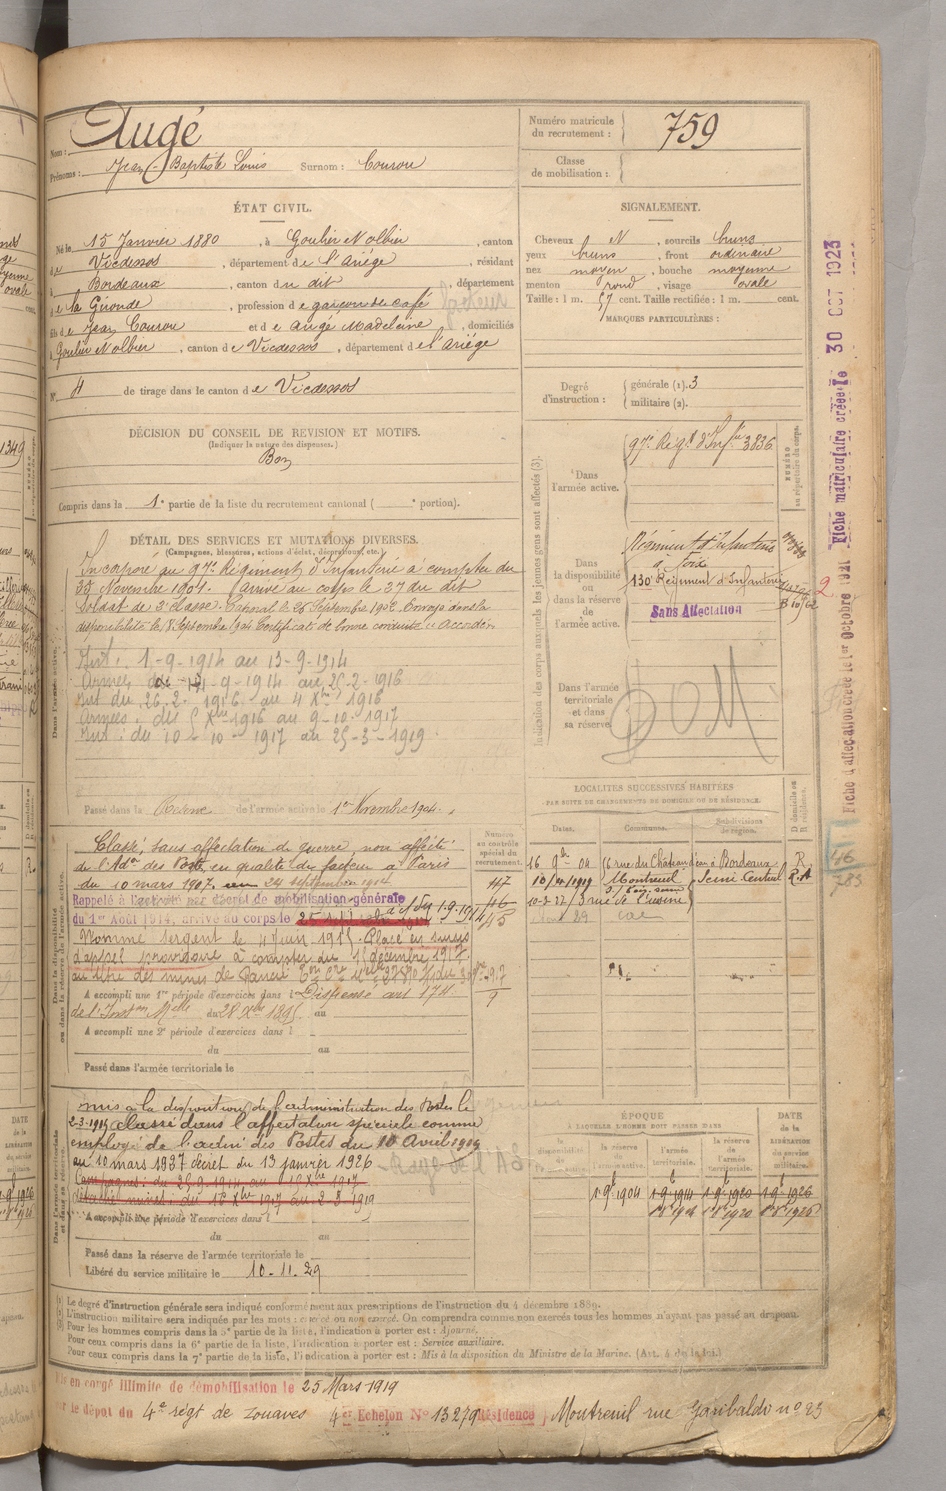 Nom : Augé
Prénoms : Jean Baptiste Louis Surnom : Courou
Numéro matricule du recrutement : 759
Classe de mobilisation :
ÉTAT CIVIL.
Né le 15 Janvier 1880, à Goulier et Olbier, canton
de Vicdessos, département de l'Ariège, résidant
à Bordeaux, canton du dit, département
de la Gironde, profession de garçon de café
fils de Jean Courou et de Augé Madeleine, domiciliés
à Goulier et Olbier, canton de Vicdessos, département de l'Ariège
N° 4 de tirage dans le canton de Vicdessos
SIGNALEMENT.
Cheveux N, sourcils bruns
yeux bruns, front ordinaire
nez moyen, bouche moyenne
menton rond, visage ovale
Taille : 1 m. 57 cent. Taille rectifiée : 1 m. cent.
MARQUES PARTICULIÈRES :
Degré d'instruction : générale (1). 3
militaire (2).
DÉCISION DU CONSEIL DE REVISION ET MOTIFS.
(Indiquer la nature des dispenses.)
Bon
Compris dans la 1e partie de la liste du recrutement cantonal ( e portion).
DÉTAIL DES SERVICES ET MUTATIONS DIVERSES.
(Campagnes, blessures, actions d'éclat, décorations, etc.)
Incorporé au 97e Régiment d'Infanterie à compter du
Novembre 1901. Arrivé au corps le 27 du dit
Soldat de 2e classe. Caporal le 26 Septembre 1902. Envoyé dans la
disponibilité le 18 Septembre 1904 Certificat de bonne conduite "Accordé"
Int : 1-9-1914 au 13-9-1914
Armées 14-9-1914 au 25-2-1916
Int du 26-2-1916 au 4 Xbre 1916
Armées : des 5 Xbre 1916 au 9-10-1917
Int : du 10-10-1917 au 25-3-1919
Passé dans la Réserve de l'armée active le 1er Novembre 1904.
Indication des corps auxquels les jeunes gens sont affectés (3).
Dans l'armée active. 97e Régt d'Infie 3836
NUMÉRO au répertoire du corps.
Dans la disponibilité ou dans la réserve de l'armée active.
Régiment d'Infanterie
à Foix
130e Régiment d'Infanterie
Sans Affectation
Dans l'armée territoriale et dans sa réserve.
DOM
Fiche d'affectation créée le 1er Octobre 1921 - Fiche matriculaire créée le 30 OCT 1923
2
Classé, sans affectation de guerre, non affecté
de l'Adon des Postes, en qualité de facteur à Paris
du 10 mars 1907. 24 septembre 1914
Rappelé à l'activité par décret de mobilisation générale
du 1er Août 1914, arrivé au corps le 25
Nommé sergent le 4 Juin 1915. Placé en sursis
d'appel provisoire à compter du 18 décembre 1917
au titre des mines de
A accompli une 1re période d'exercices dans l Dispensé art 174
de l'Inston Melle du 28 Xbre 1895 au
A accompli une 2e période d'exercices dans l
du au
Passé dans l'armée territoriale le
Numéro au contrôle spécial du recrutement.
LOCALITÉS SUCCESSIVES HABITÉES
PAR SUITE DE CHANGEMENTS DE DOMICILE OU DE RÉSIDENCE.
Dates. Communes. Subdivisions de région. D domicile ou R résidence.
16. 9bre 04 6 rue du Château d'eau à Bordeaux R
Montreuil Seine Central R.A
mis à la disposition de l'administration des Postes le
2-3-1919 classé dans l'affectation spéciale comme
employé de l'admi des Postes du 10 Avril 1909
au 10 mars 1937 décret du 13 janvier 1926
Rayé de l'A S
Campagnes : du 25.9.1914 au 18 Xbre 1917
détaché mines : du 18 Xbre 1917 au 2 3 1919
A accompli une période d'exercices dans l
du au
Passé dans la réserve de l'armée territoriale le
Libéré du service militaire le 10-11.29
ÉPOQUE
À LAQUELLE L'HOMME DOIT PASSER DANS
la disponibilité la réserve de l'armée active. l'armée territoriale. la réserve de l'armée territoriale.
DATE de la LIBÉRATION du service militaire.
1-9b 1904 1-9b 1914 1-9b 1920 1-9b 1926
(1) Le degré d'instruction générale sera indiqué conformément aux prescriptions de l'instruction du 4 décembre 1889.
(2) L'instruction militaire sera indiquée par les mots : exercé ou non exercé. On comprendra comme non exercés tous les hommes n'ayant pas passé au drapeau.
(3) Pour les hommes compris dans la 5e partie de la liste, l'indication à porter est : Ajourné.
Pour ceux compris dans la 6e partie de la liste, l'indication à porter est : Service auxiliaire.
Pour ceux compris dans la 7e partie de la liste, l'indication à porter est : Mis à la disposition du Ministre de la Marine. (Art. 4 de la loi.)
en congé illimité de démobilisation le 25 Mars 1919
le dépôt du 4e régt de Zouaves 4er Echelon N° 13279 Résidence Montreuil rue Garibaldi n° 23